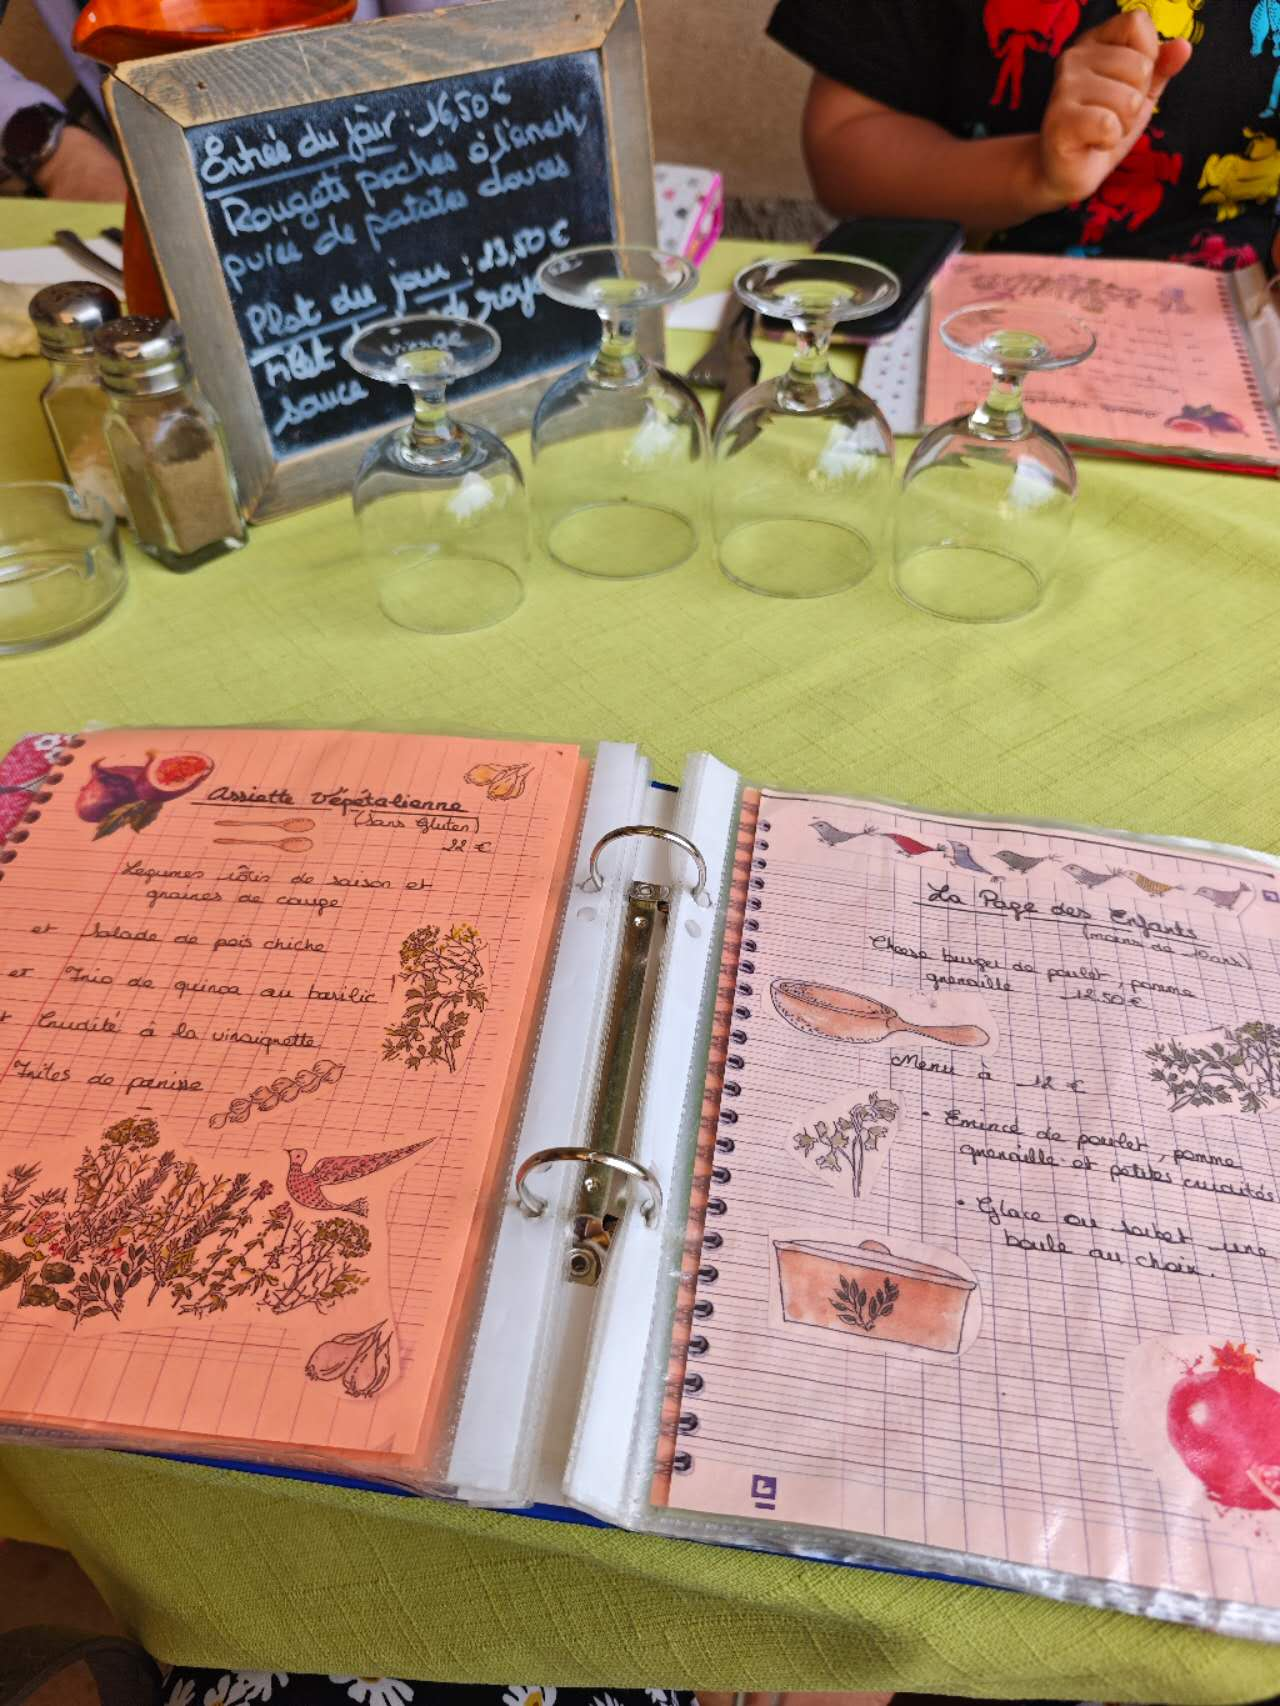 Entrée du jour : 16,50 €
Rougets pochés à l'aneth,
purée de patates douces
Plat du jour : 23,50 €
Filet de roya
sauce vierge
Assiette Végétalienne
(Sans Gluten)
22 €
Légumes rôtis de saison et
graines de courge
et Salade de pois chiche
et Trio de quinoa au basilic
et Crudité à la vinaigrette
Frites de panisse
La Page des Enfants
(moins de 10 ans)
Cheese burger de poulet, pomme
grenaille 12.50 €
Menu à 12 €
• Emincé de poulet, pomme
grenaille et petites crudités
• Glace ou sorbet une
boule au choix.